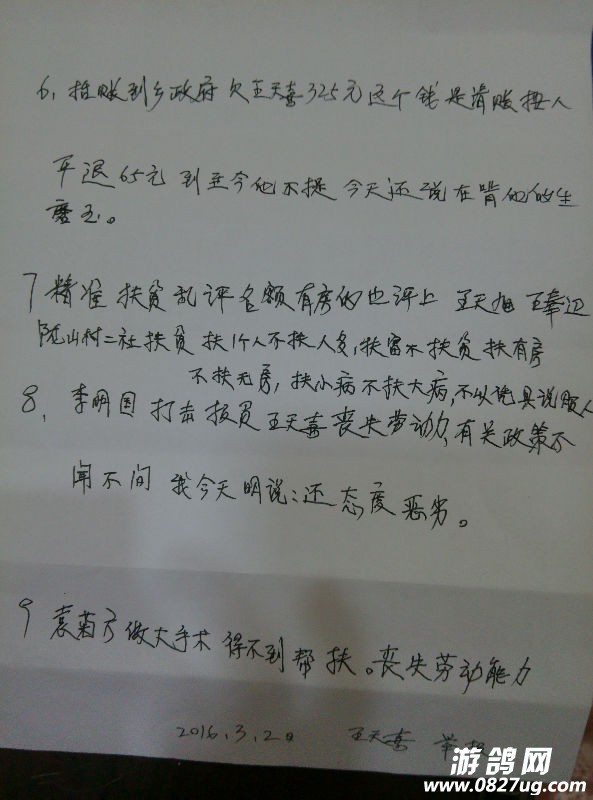 6、挂账到乡政府欠王天喜325元这个钱是清账按人
平退65元到至今他不提今天还说在啃他的生
7精准扶贫乱评名额有房的也评上王天旭王奉迎
陇山村二社扶贫扶1个人不扶人多,扶富不扶贫扶有房
不扶无房,扶小病不扶大病,不以说具说服人
8、李明国打击报复王天喜丧失劳动力,有关政策不
闻不问我今天明说:还态度恶劣。
9袁菊方做大手术得不到帮扶。丧失劳动能力
2016.3.2日 王天喜 举报
游鸽网
www.0827ug.com